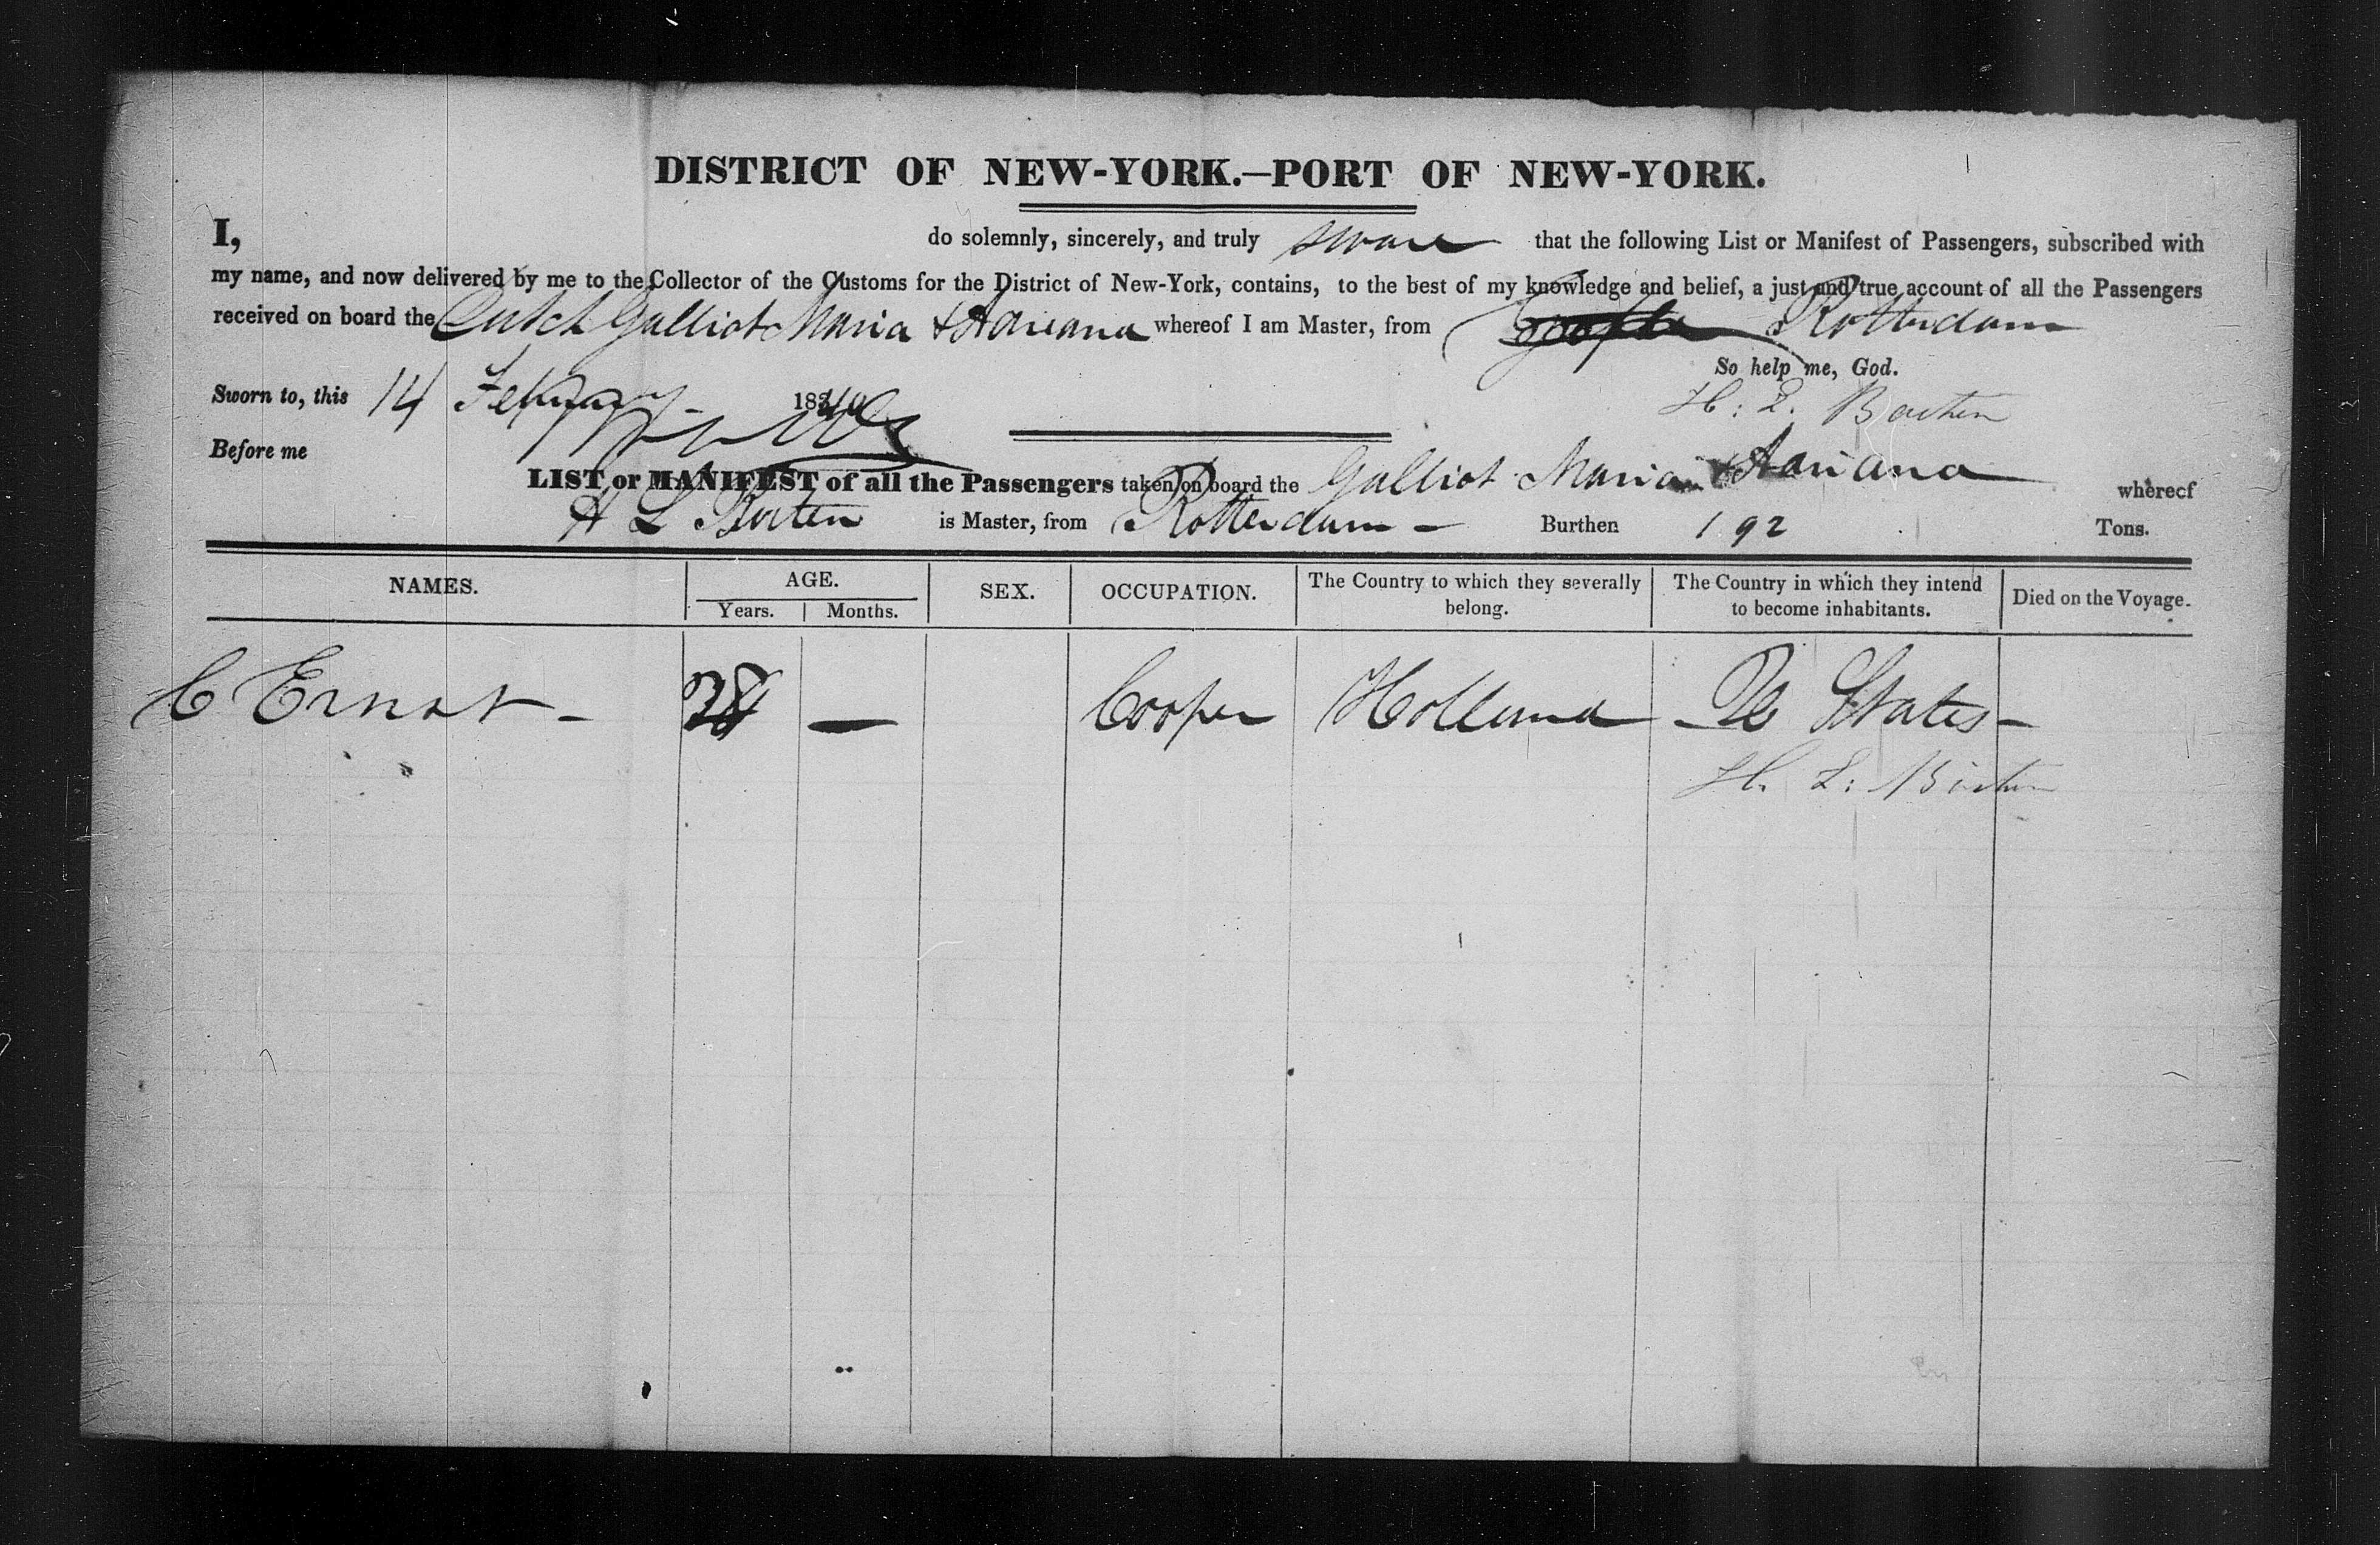 DISTRICT OF NEW-YORK.—PORT OF NEW-YORK.
I, do solemnly, sincerely, and truly sware that the following List or Manifest of Passengers, subscribed with
my name, and now delivered by me to the Collector of the Customs for the District of New-York, contains, to the best of my knowledge and belief, a just and true account of all the Passengers
received on board the Dutch Galliot Maria & Adriana whereof I am Master, from Rotterdam
So help me, God.
Sworn to, this 14 February 1840
H: L. Borten
Before me
LIST or MANIFEST of all the Passengers taken on board the Galliot Maria & Adriana whereof
H L Borten is Master, from Rotterdam — Burthen 192 Tons.
NAMES. AGE. SEX. OCCUPATION. The Country to which they severally belong. The Country in which they intend to become inhabitants. Died on the Voyage.
Years. Months.
C Ernst — 28 — Cooper Holland U States —
H. L: Borten